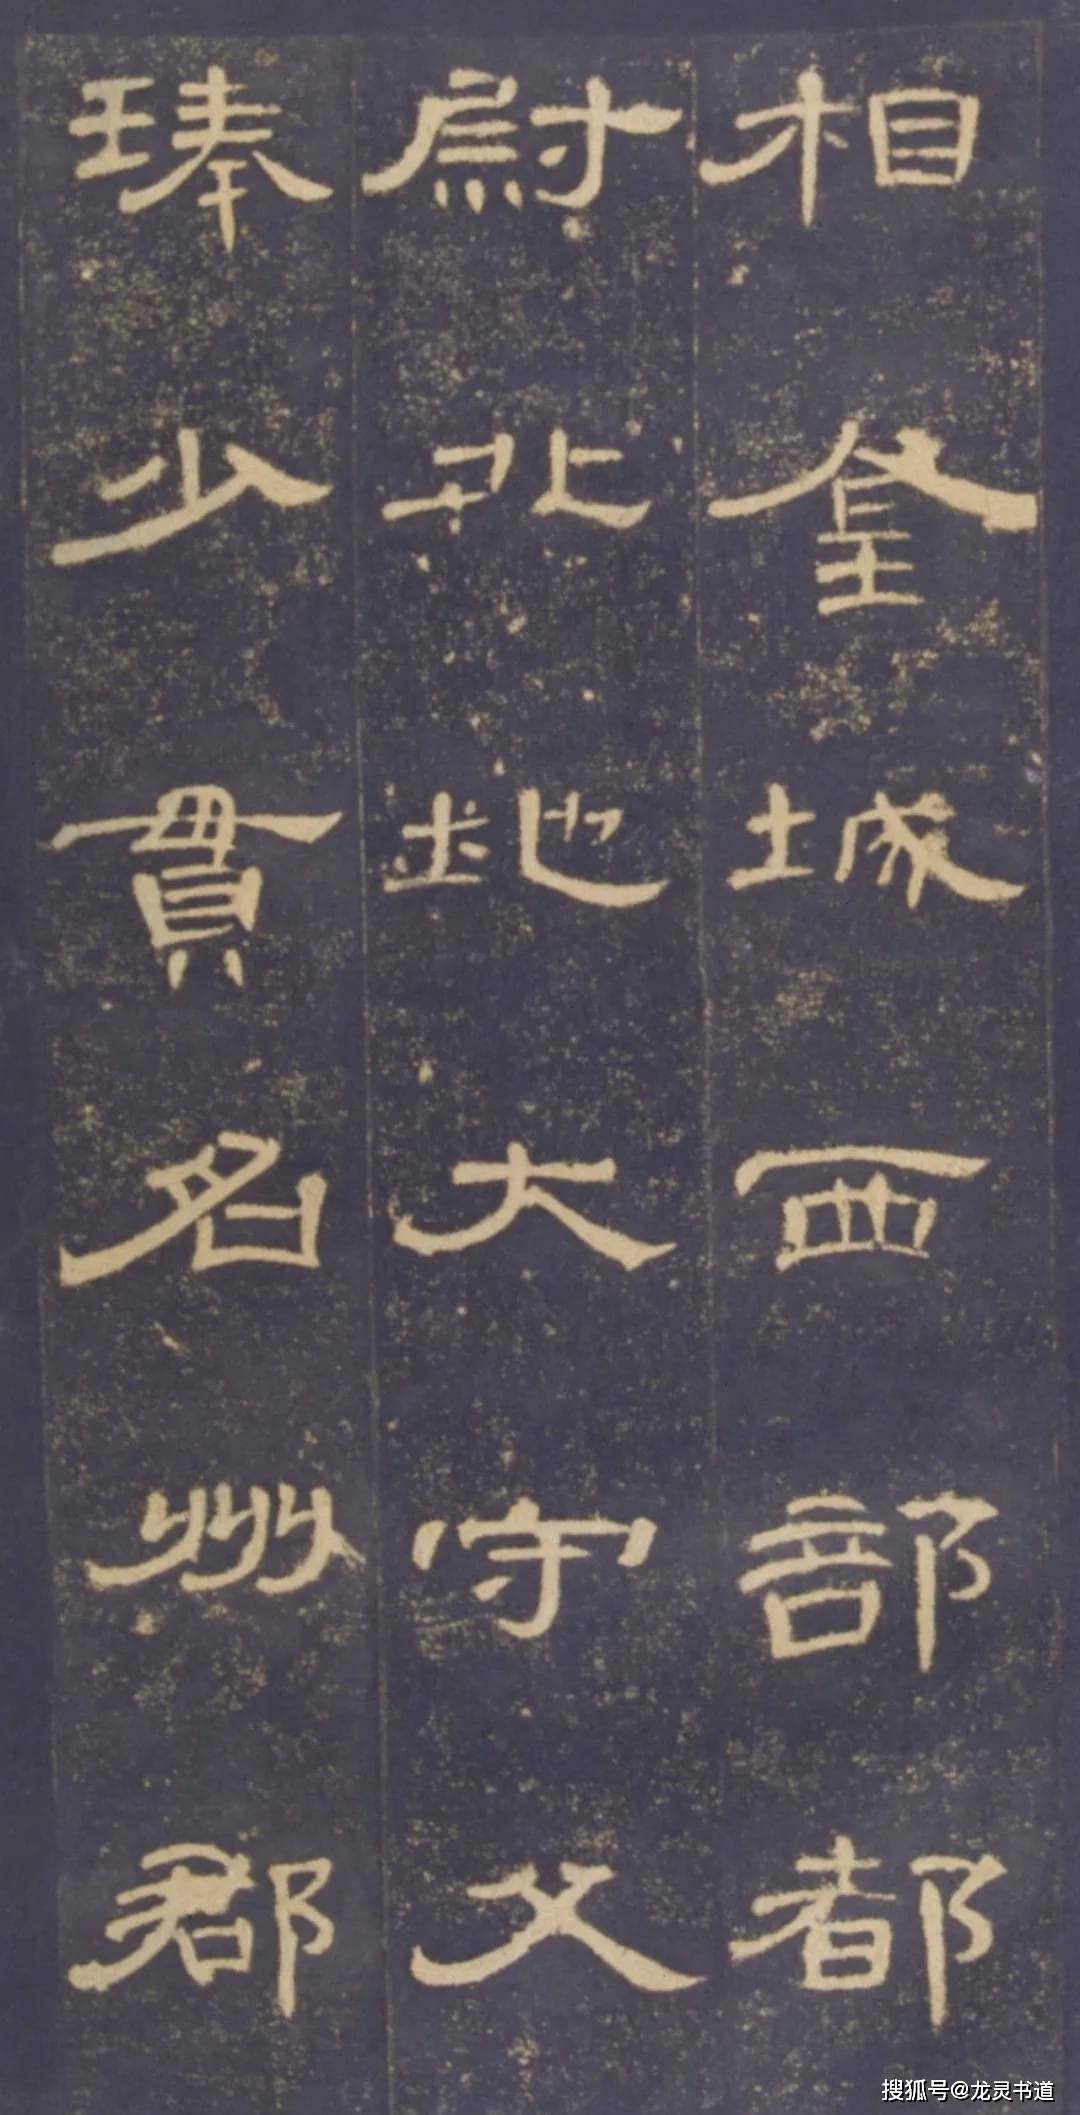 相金城西部都
尉北地大守父
琫少貫名州郡
搜狐号@龙灵书道